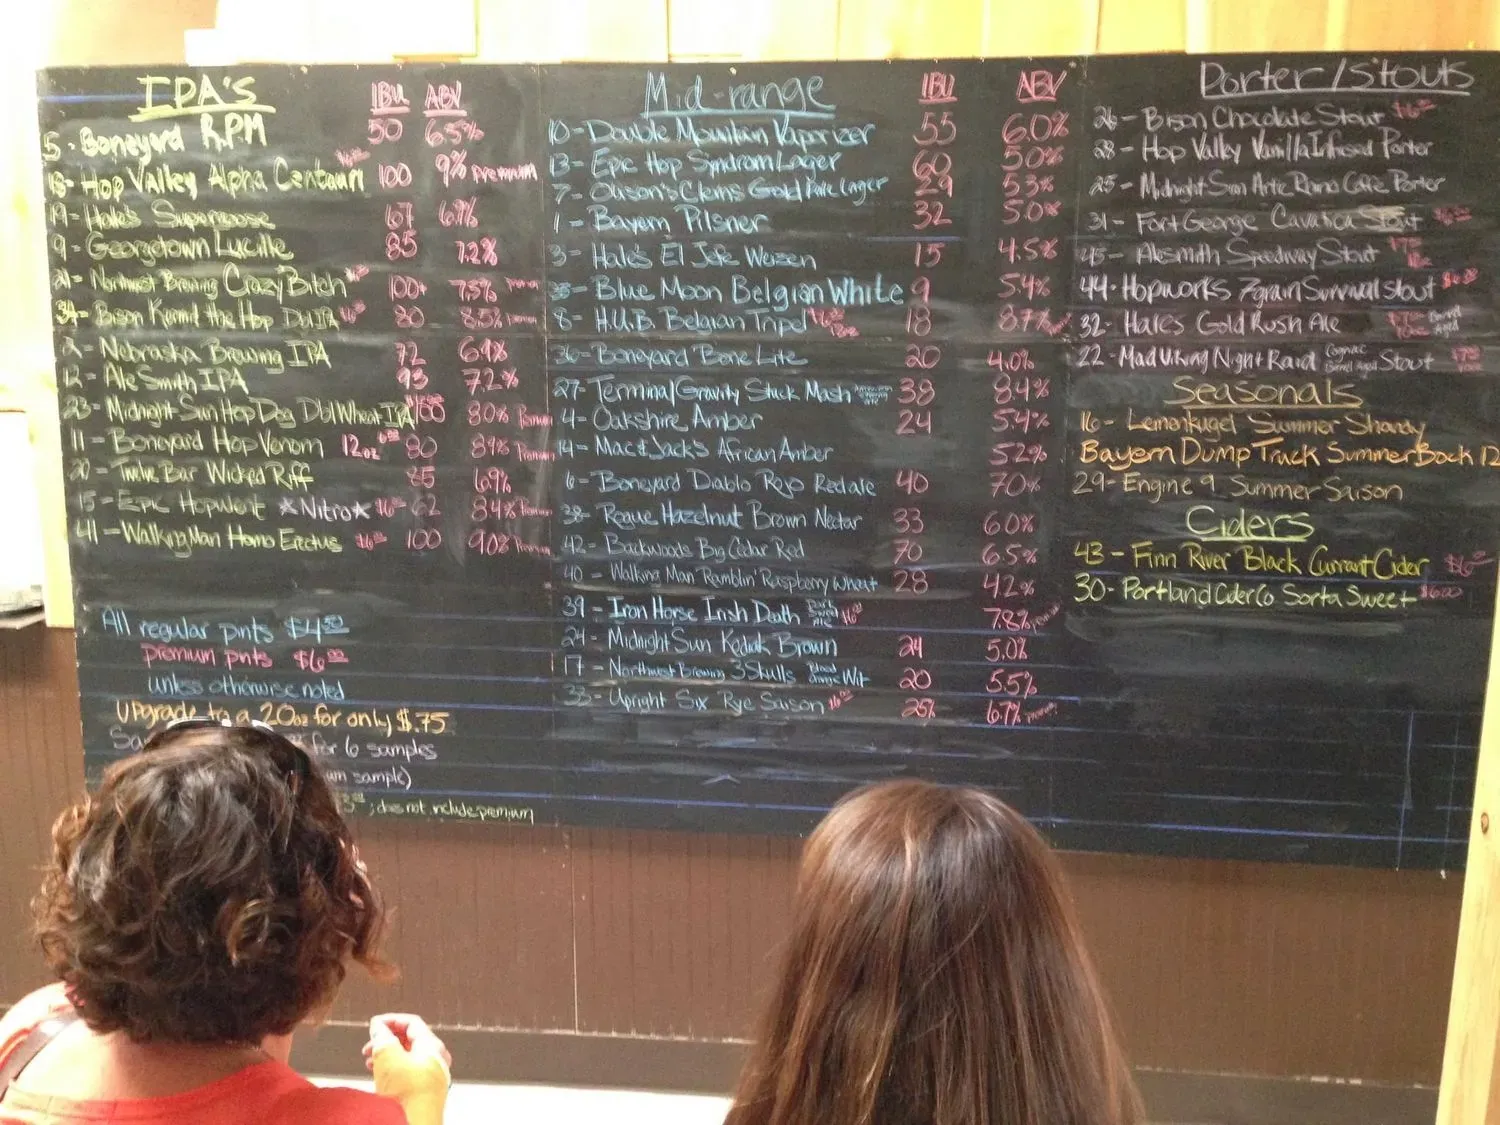 IPA'S IBU ABV
5 - Boneyard RPM 50 6.5%
18 - Hop Valley Alpha Centauri 100 9% premium
19 - Hale's Supergoose 67 6.9%
9 - Georgetown Lucille 85 7.2%
21 - Northwest Brewing Crazy Bitch 100+ 7.5%
34 - Bison Kermit the Hop Dbl IPA 80 8.5%
2 - Nebraska Brewing IPA 72 6.9%
12 - AleSmith IPA 93 7.2%
23 - Midnight Sun Hop Dog Dbl Wheat IPA 100 8.0%
11 - Boneyard Hop Venom 12oz 80 8.9%
20 - Twelve Bar Wicked Riff 85 6.9%
15 - Epic Hopulent *Nitro* 62 8.4%
41 - Walking Man Homo Erectus $6.00 100 9.0%
All regular pints $4.50
premium pints $6.00
unless otherwise noted
Upgrade to a 20oz for only $.75
for 6 samples
sample)
; does not include premium
Mid-range IBU ABV
10 - Double Mountain Vaporizer 55 6.0%
13 - Epic Hop Syndrom Lager 60 5.0%
7 - Gold Pale Lager 29 5.3%
1 - Bayern Pilsner 32 5.0%
3 - Hale's El Jefe Weizen 15 4.5%
35 - Blue Moon Belgian White 9 5.4%
8 - H.U.B. Belgian Tripel 18 8.7%
36 - Boneyard Bone Lite 20 4.0%
27 - Terminal Gravity Stuck Mash 38 8.4%
4 - Oakshire Amber 24 5.4%
14 - Mac & Jack's African Amber 5.2%
6 - Boneyard Diablo Rojo Red ale 40 7.0%
38 - Rogue Hazelnut Brown Nectar 33 6.0%
42 - Backwoods Big Cedar Red 70 6.5%
40 - Walking Man Ramblin' Raspberry Wheat 28 4.2%
39 - Iron Horse Irish Death 7.8%
24 - Midnight Sun Kodiak Brown 24 5.0%
17 - Northwest Brewing 3 Skulls Blood Orange Wit 20 5.5%
33 - Upright Six Rye Saison 25% 6.7%
Porter/Stouts
26 - Bison Chocolate Stout
28 - Hop Valley Vanilla Infused Porter
25 - Midnight Sun Arte Porter
31 - Fort George Cavatica Stout
45 - Alesmith Speedway Stout
44 - Hopworks 7 grain Survival Stout $6.00
32 - Hales Gold Rush Ale Barrel Aged
22 - Mad Viking Night Raid Cognac Barrel Aged Stout
Seasonals
16 - Leinenkugel Summer Shandy
Bayern Dump Truck Summer Bock 12
29 - Engine 9 Summer Saison
Ciders
43 - Finn River Black Currant Cider $6.00
30 - Portland Cider Co Sorta Sweet $6.00